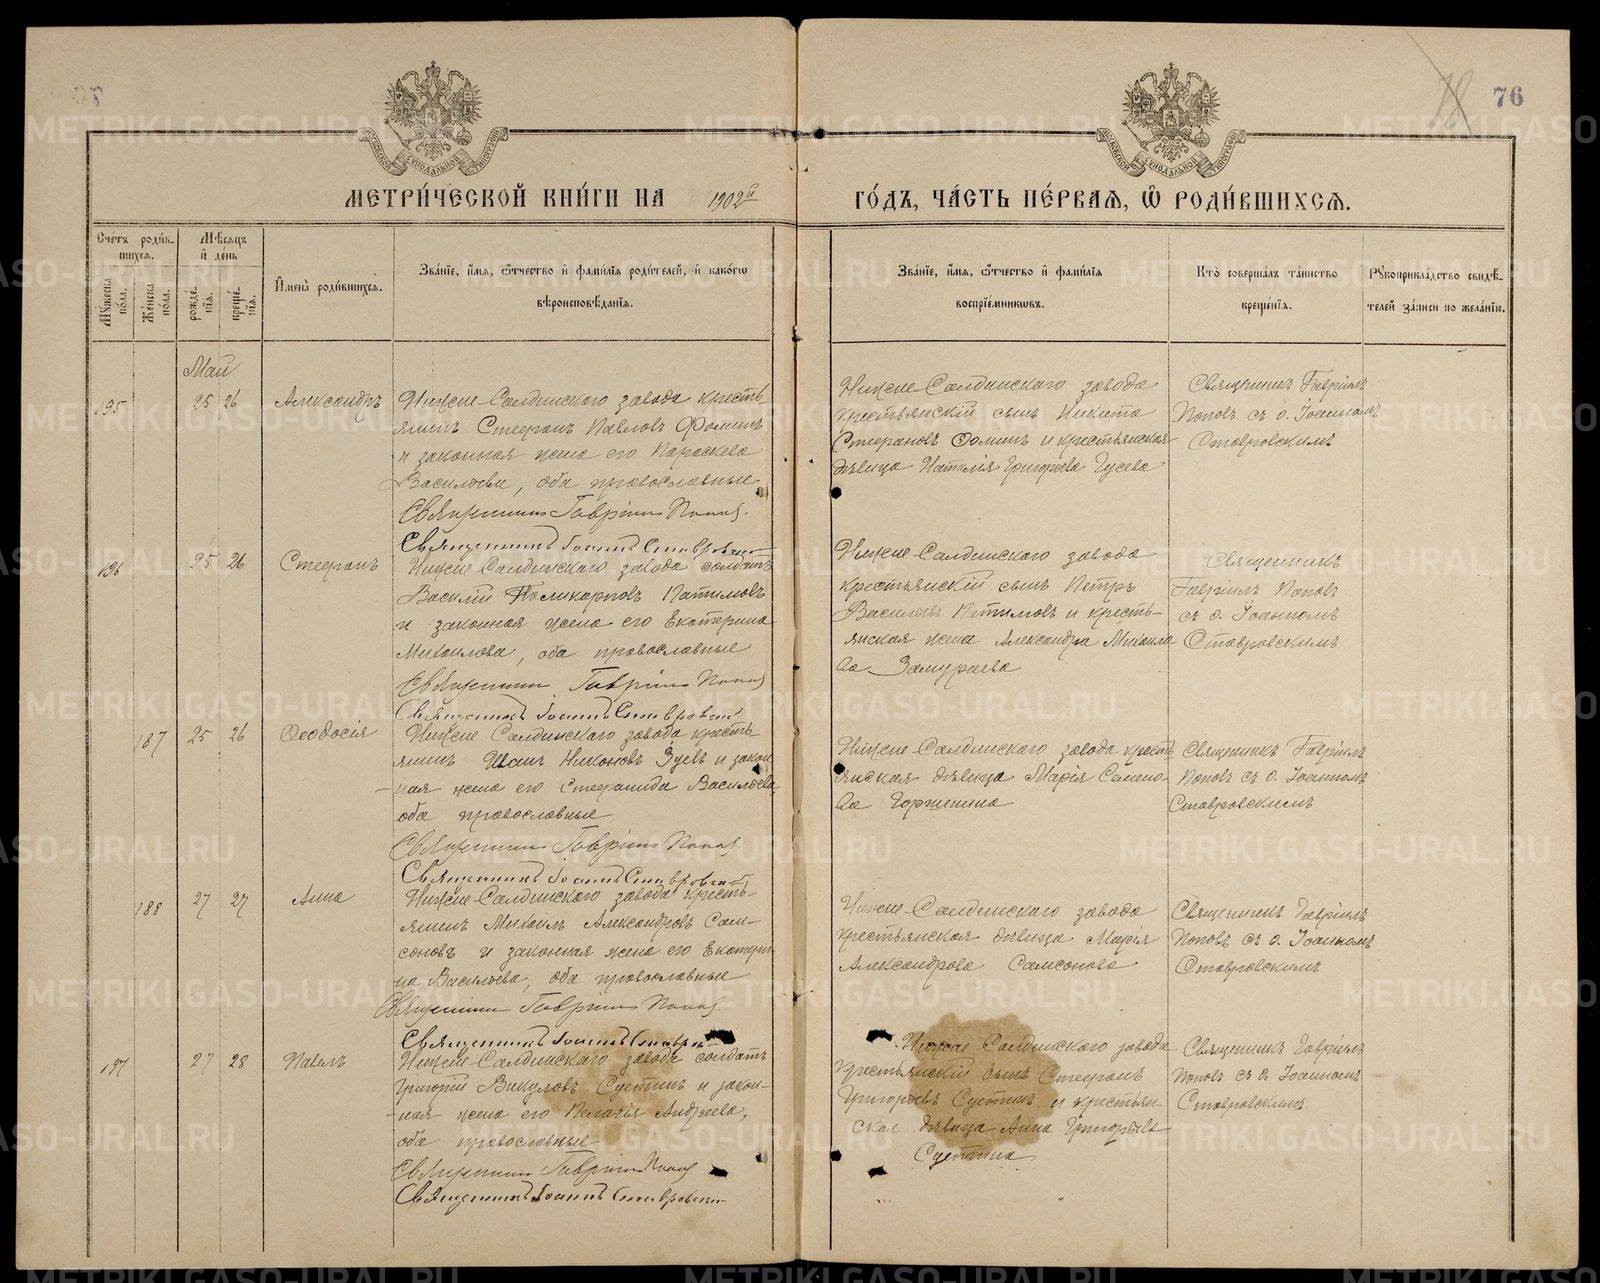 76
МЕТРИ́ЧЕСКОЙ КНИ́ГИ НА 1902й ГО́ДЪ, ЧА́СТЬ ПЕ́РВАѦ, Ѿ РОДИ́ВШИХСѦ.
Счетъ роди́вшихсѧ.
Мꙋ́жеска по́ла.
Же́нска по́ла.
Мѣ́сѧцъ и҆ де́нь
рожде́нїѧ.
креще́нїѧ.
И҆мена̀ роди́вшихсѧ.
Зва́нїе, и҆́мѧ, ѻ҆́тчество и҆ фами́лїѧ роди́телей, и҆ како́гѡ
вѣроисповѣ́данїѧ.
Зва́нїе, и҆́мѧ, ѻ҆́тчество и҆ фами́лїѧ
воспрїе́мникѡвъ.
Кто̀ соверша́лъ та́инство
креще́нїѧ.
Рꙋкоприкла́дство свидѣ́-
телей за́писи по жела́нїю.
Май
195
25 26
Александръ
Нижне-Салдинскаго завода кресть-
янинъ Стефанъ Павловъ Ѳоминъ
и законная жена его Параскева
Васильева, оба православные
Священникъ Гавріилъ Поповъ.
Священникъ Іоаннъ Ставровскій
Нижне-Салдинскаго завода
крестьянскій сынъ Никита
Стефановъ Ѳоминъ и крестьянская
дѣвица Наталія Григорьева Гусева
Священникъ Гавріилъ
Поповъ съ о. Іоанномъ
Ставровскимъ
196
25 26
Стефанъ
Нижне-Салдинскаго завода солдатъ
Василій Поликарповъ Патимовъ
и законная жена его Екатерина
Михаилова, оба православные
Священникъ Гавріилъ Поповъ
Священникъ Іоаннъ Ставровскій
Нижне-Салдинскаго завода
крестьянскій сынъ Петръ
Васильевъ Патимовъ и кресть-
янская жена Александра Михаило-
ва Замураева
Священникъ
Гавріилъ Поповъ
съ о. Іоанномъ
Ставровскимъ
187
25 26
Ѳеодосія
Нижне Салдинскаго завода кресть-
янинъ Иванъ Никоновъ Зуевъ и закон-
ная жена его Стефанида Васильева
оба православные
Священникъ Гавріилъ Поповъ
Священникъ Іоаннъ Ставровскій
Нижне-Салдинскаго завода кресть-
янская дѣвица Марія Семено-
ва Горшенина
Священникъ Гавріилъ
Поповъ съ о. Іоанномъ
Ставровскимъ
188
27 27
Анна
Нижне-Салдинскаго завода кресть-
янинъ Михаилъ Александровъ Сам-
соновъ и законная жена его Екатери-
на Васильева, оба православные
Священникъ Гавріилъ Поповъ.
Священникъ Іоаннъ Ставров
Нижне-Салдинскаго завода
крестьянская дѣвица Марія
Александрова Самсонова
Священникъ Гавріилъ
Поповъ съ о. Іоанномъ
Ставровскимъ
197
27 28
Павелъ
Нижне-Салдинскаго завода солдатъ
Григорій Викуловъ Сустинъ и закон-
ная жена его Пелагія Андреева,
оба православные
Священникъ Гавріилъ Поповъ
Священникъ Іоаннъ Ставровскій
Нижне Салдинскаго завода
крестьянскій сынъ Стефанъ
Григорьевъ Сустинъ и крестьян-
ская дѣвица Анна Григорьева
Сустина
Священникъ Гавріилъ
Поповъ съ о. Іоанномъ
Ставровскимъ
METRIKI.GASO-URAL.RU